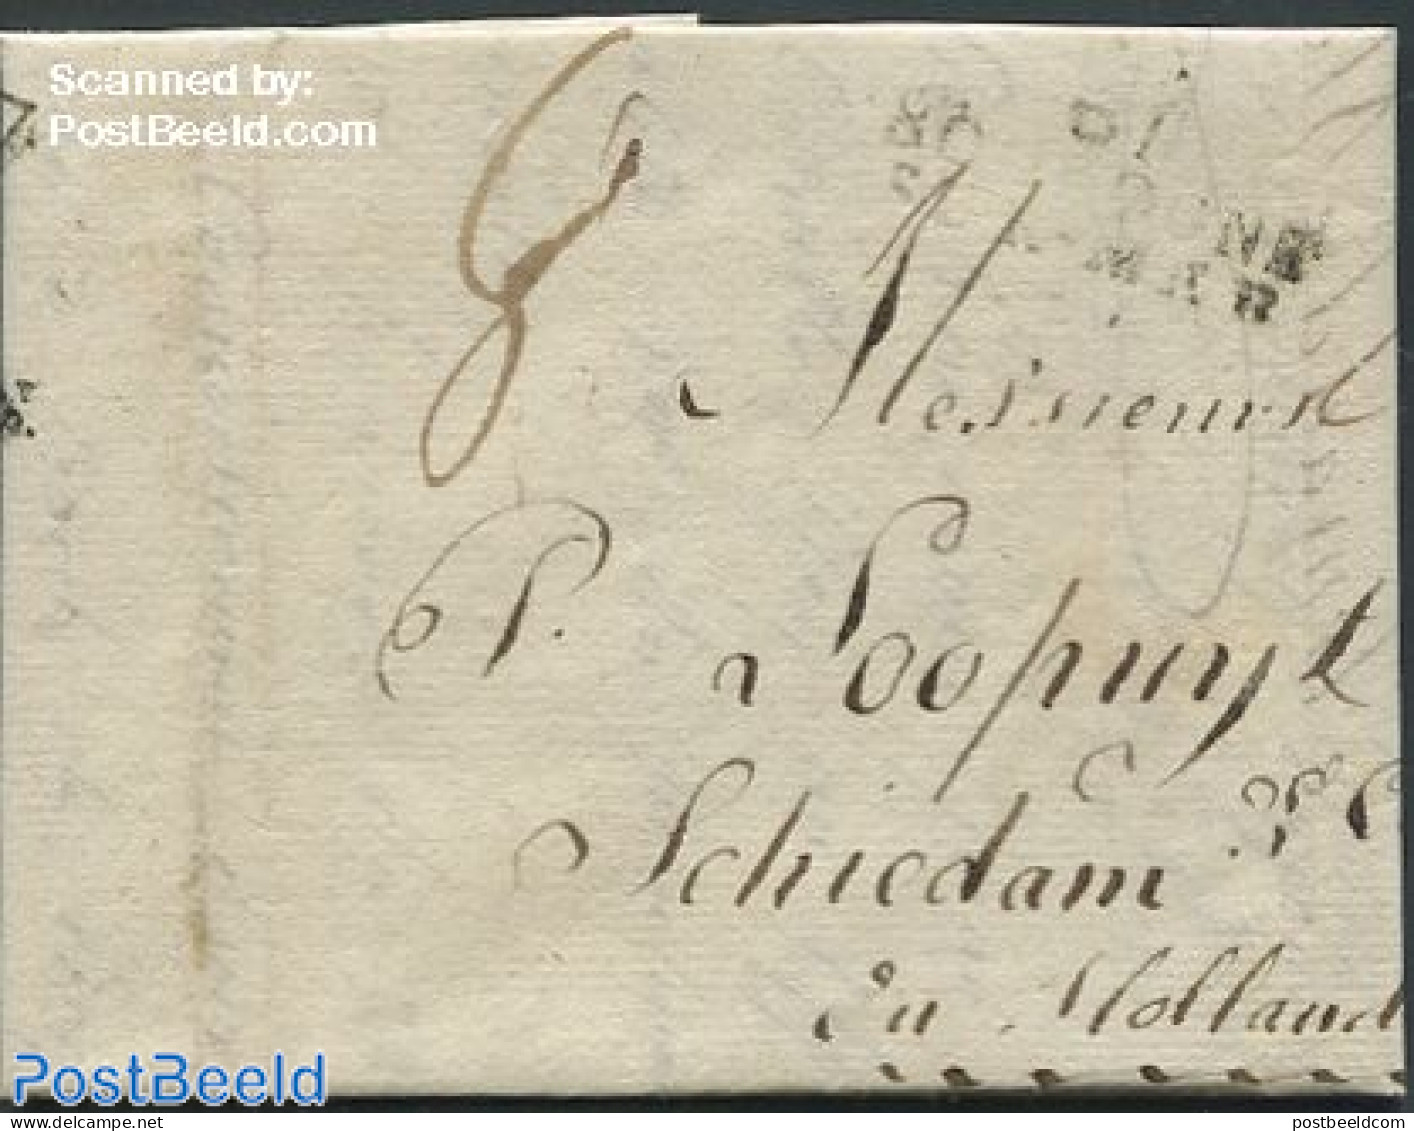 Scanned by:
PostBeeld.com
8
Messieurs
P. Loopuyt & C
Schiedam
En Holland
PostBeeld
www.delcampe.net
postbeeldcom